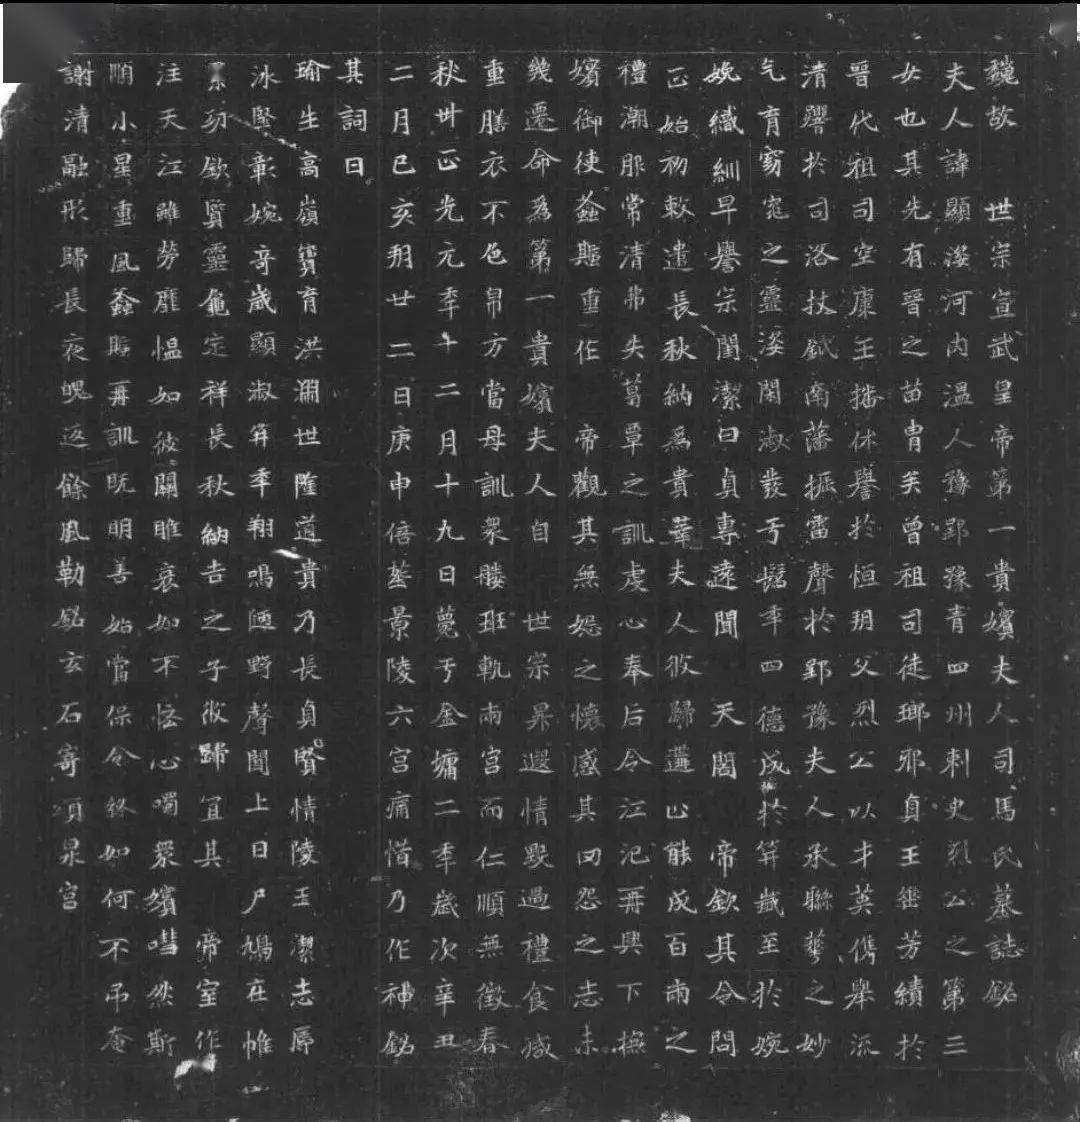 魏故世宗宣武皇帝第一貴嬪夫人司馬氏墓誌銘
夫人諱顯姿河內溫人豫郢豫青四州刺史烈公之第三
女也其先有晉之苗胄矣曾祖司徒瑯邪貞王垂芳績於
晉代祖司空康王播休譽於恒玥父烈公以才英儁舉流
清譽於司洛杖鉞南藩振雷聲於郢豫夫人承聯華之妙
氣育窈窕之靈姿閑淑發于髫年四德成於笄歲至於婉
娩織紃早譽宗閨潔白貞專遠聞天閣帝欽其令問
正始初敕遣長秋納為貴華夫人攸歸遘止能成百兩之
禮澣服常清弗失葛覃之訓虔心奉后令江汜再興下撫
嬪御使螽斯重作帝觀其無怨之懷感其罔怨之志未
幾遷命為第一貴嬪夫人自世宗昇遐情毀過禮食減
重膳衣不色帛方當母訓眾髏班軌兩宮而仁順無徵春
秋卅正光元年十二月十九日薨于金墉二年歲次辛丑
二月己亥朔廿二日庚申倍塟景陵六宮痛惜乃作神銘
其詞曰
瑜生高嶺寶育洪瀾世隆道貴乃長貞賢情陵玉潔志厲
冰堅彰婉奇歲顯淑笄年翔鳴迥野聲聞上曰尸鳩在帷
功欽質靈龜定祥長秋納吉之子攸歸宜其帝室作
注天江雖勞靡慍如彼關雎哀如不忮心噣眾嬪嘒然斯
順小星重風螽斯再訓既明善始當保令終如何不吊奄
謝清融形歸長夜魄返餘風勒銘玄石寄頌泉宮